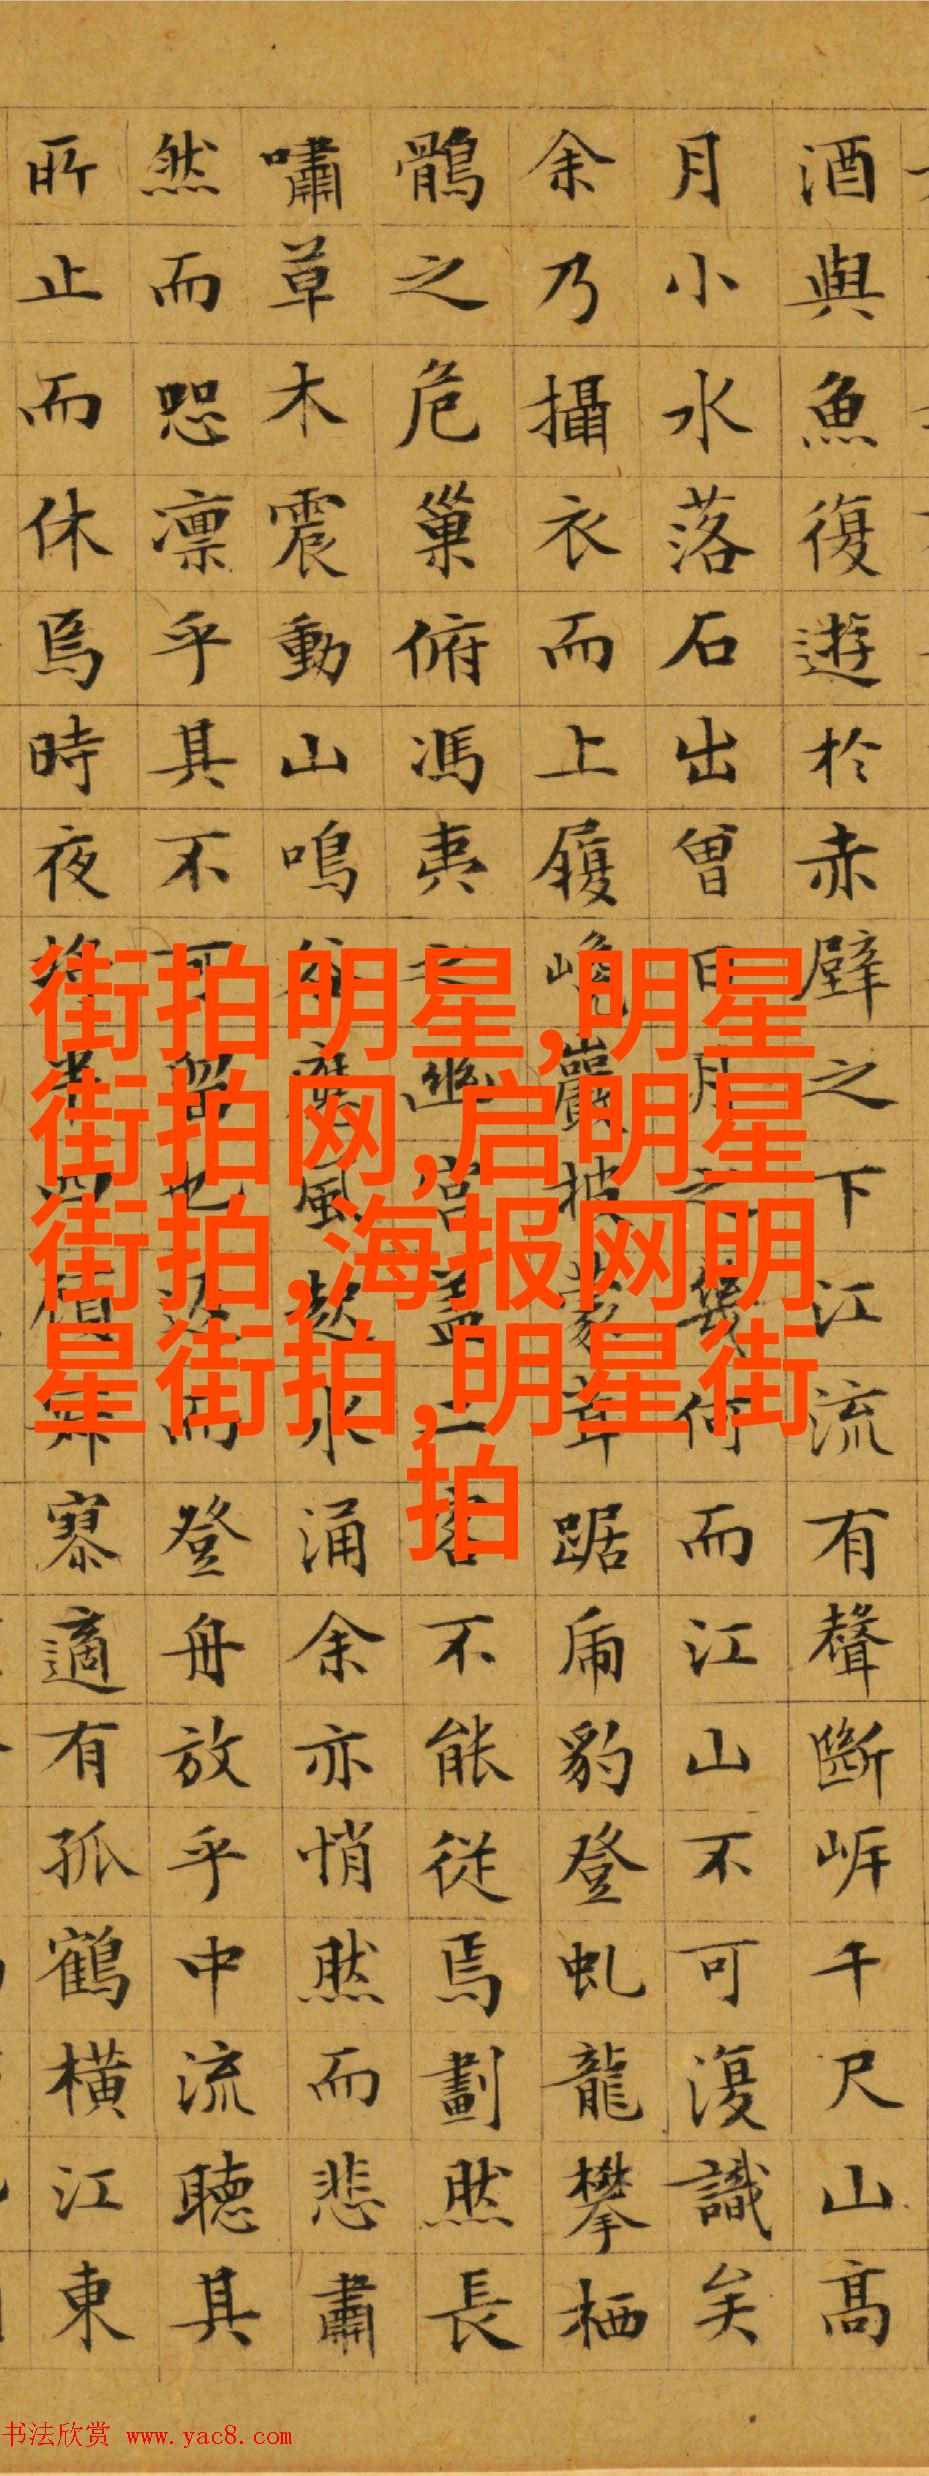 酒與魚復遊於赤壁之下江流有聲斷岸千尺山高
月小水落石出曾日月之幾何而江山不可復識矣
余乃攝衣而上履巉巖披蒙茸踞虎豹登虬龍攀栖
鶻之危巢俯馮夷之幽宮盖二客不能從焉劃然長
嘯草木震動山鳴谷應風起水涌余亦悄然而悲肅
然而恐凛乎其不可留也返而登舟放乎中流聽其
所止而休焉時夜將半四顧寂寥適有孤鶴橫江東
街拍明星,明星
街拍网,启明星
街拍,海报网明
星街拍,明星街
拍
书法欣赏 www.yac8.com